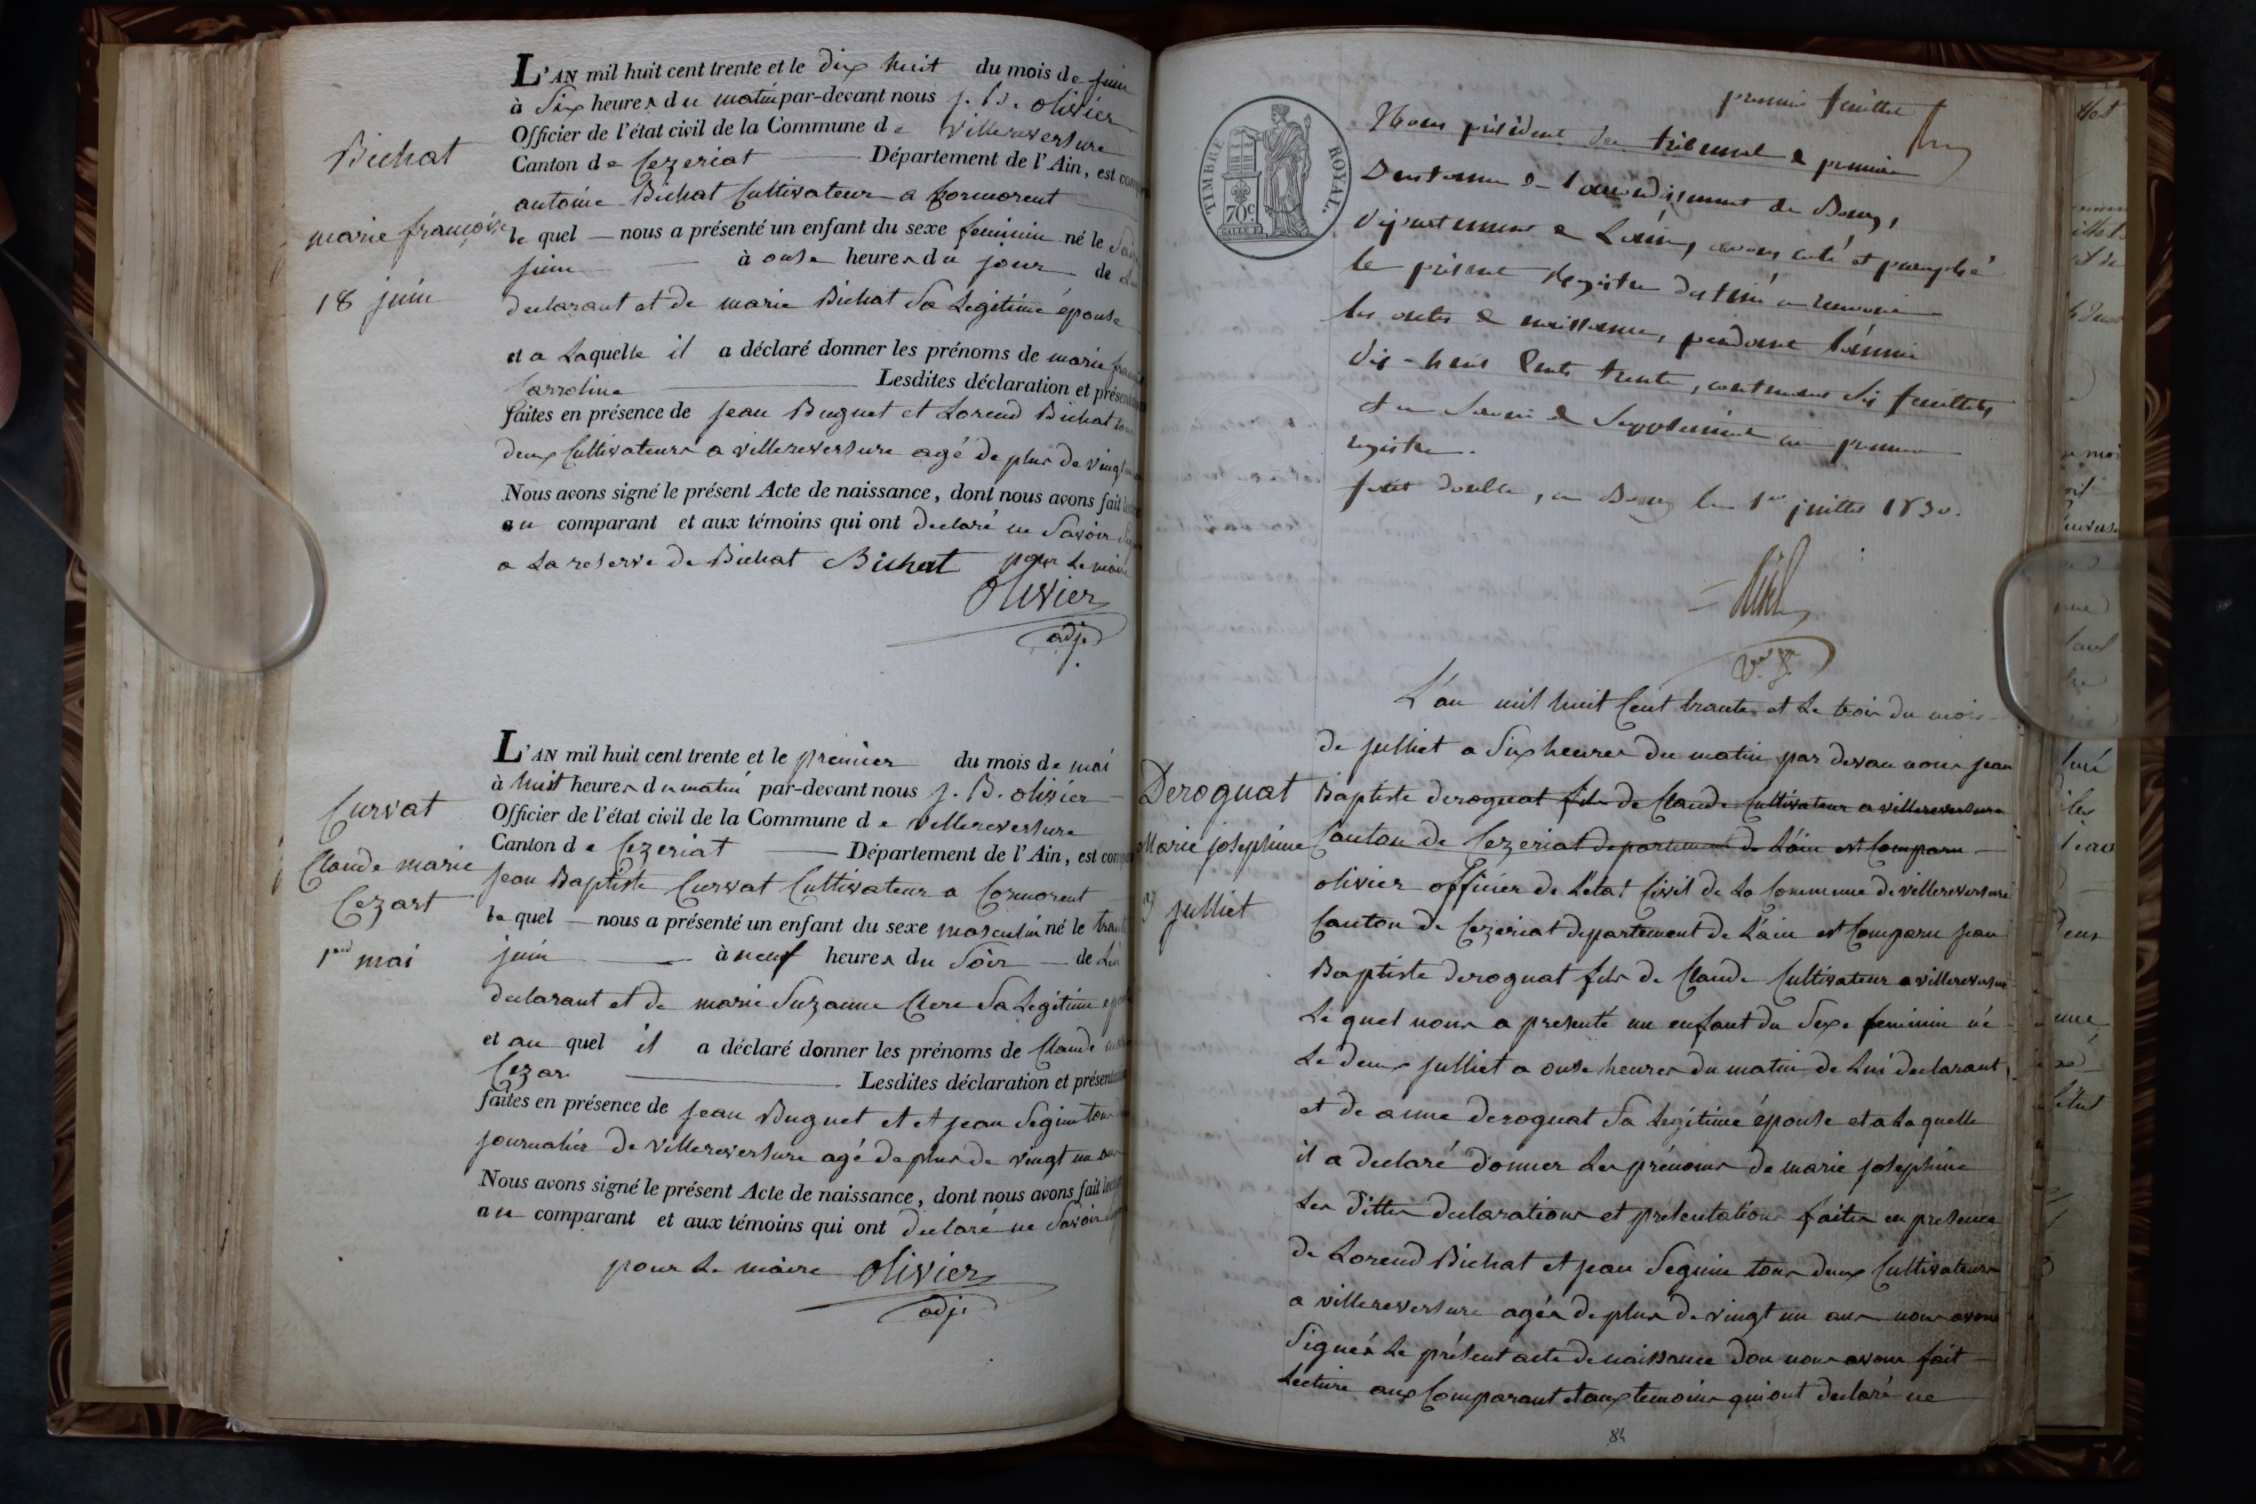 L'AN mil huit cent trente et le dix huit du mois de juin
à Six heures du matin par-devant nous j. B. olivier
Officier de l'état civil de la Commune de villereversure
Canton de Cezeriat Département de l'Ain, est
Bichat
antoine Bichat Cultivateur a
marie françoise
le quel nous a présenté un enfant du sexe feminin né le
juin à onse heures du jour de
18 juin
declarant et de marie Bichat Sa Legitime épouse
et a Laquelle il a déclaré donner les prénoms de marie
Carroline Lesdites déclaration et
faites en présence de jean Buguet et Lorend Bichat
deux Cultivateurs a villereversure agé de plus de vingt
Nous avons signé le présent Acte de naissance, dont nous avons fait
au comparant et aux témoins qui ont declaré ne Savoir
a La reserve de Bichat Bichat pour Le maire
olivier
adj.
L'AN mil huit cent trente et le premier du mois de mai
à huit heures du matin par-devant nous j. B. olivier
Officier de l'état civil de la Commune de villereversure
Canton de Cezeriat Département de l'Ain, est
Curvat
Claude marie
Cezart
1er mai
jean Baptiste Curvat Cultivateur a Cormorent
le quel nous a présenté un enfant du sexe masculin né le
juin à neuf heures du Soir de Lui
declarant et de marie Suzanne Clere Sa Legitime
et au quel il a déclaré donner les prénoms de Claude
Cezar Lesdites déclaration et
faites en présence de jean Buguet et et jean Seguin tous
journalier de villereversure agé de plus de vingt un ans
Nous avons signé le présent Acte de naissance, dont nous avons fait
au comparant et aux témoins qui ont declaré ne Savoir
pour Le maire olivier
adj.
premier feuillet
TIMBRE ROYAL.
70c
Nous président du tribunal de premiere
Instance de l'arrondissement de Bourg,
Département de L'ain, avons coté et paraphé
le présent Registre destiné a recevoir
les actes de naissance, pendant l'année
dix-huit Cents trente, contenant Six feuillets,
et a Servir de Supplément au premier
registre.
fait double, a Bourg le 1er juillet 1830.
L'an mil huit Cent trante et Le trois du mois
de julliet a Six heures du matin par devan nous jean
Baptiste deroguat fils de Claude Cultivateur a villereversure
Canton de Cezeriat departement de L'ain est Comparu
olivier officier de L'etat Civil de La Commune de villereversure
Canton de Cezeriat departement de L'ain est Comparu jean
Baptiste deroguat fils de Claude Cultivateur a villereversure
Le quel nous a presenté un enfant du Sexe feminin né
Le deux julliet a onse heures du matin de Lui declarant,
et de anne deroguat Sa Legitime épouse et a Laquelle
il a declaré donner Les prénoms de marie josephine
Les dittes declarations et presentations faites en presence
de Lorend Bichat et jean Seguin tous deux Cultivateurs
a villereversure agés de plus de vingt un ans nous avons
Signés Le présent acte de naissance don nous avons fait
Lecture aux Comparant et aux temoins qui ont declaré ne
Deroguat
Marie josephine
3 julliet
84